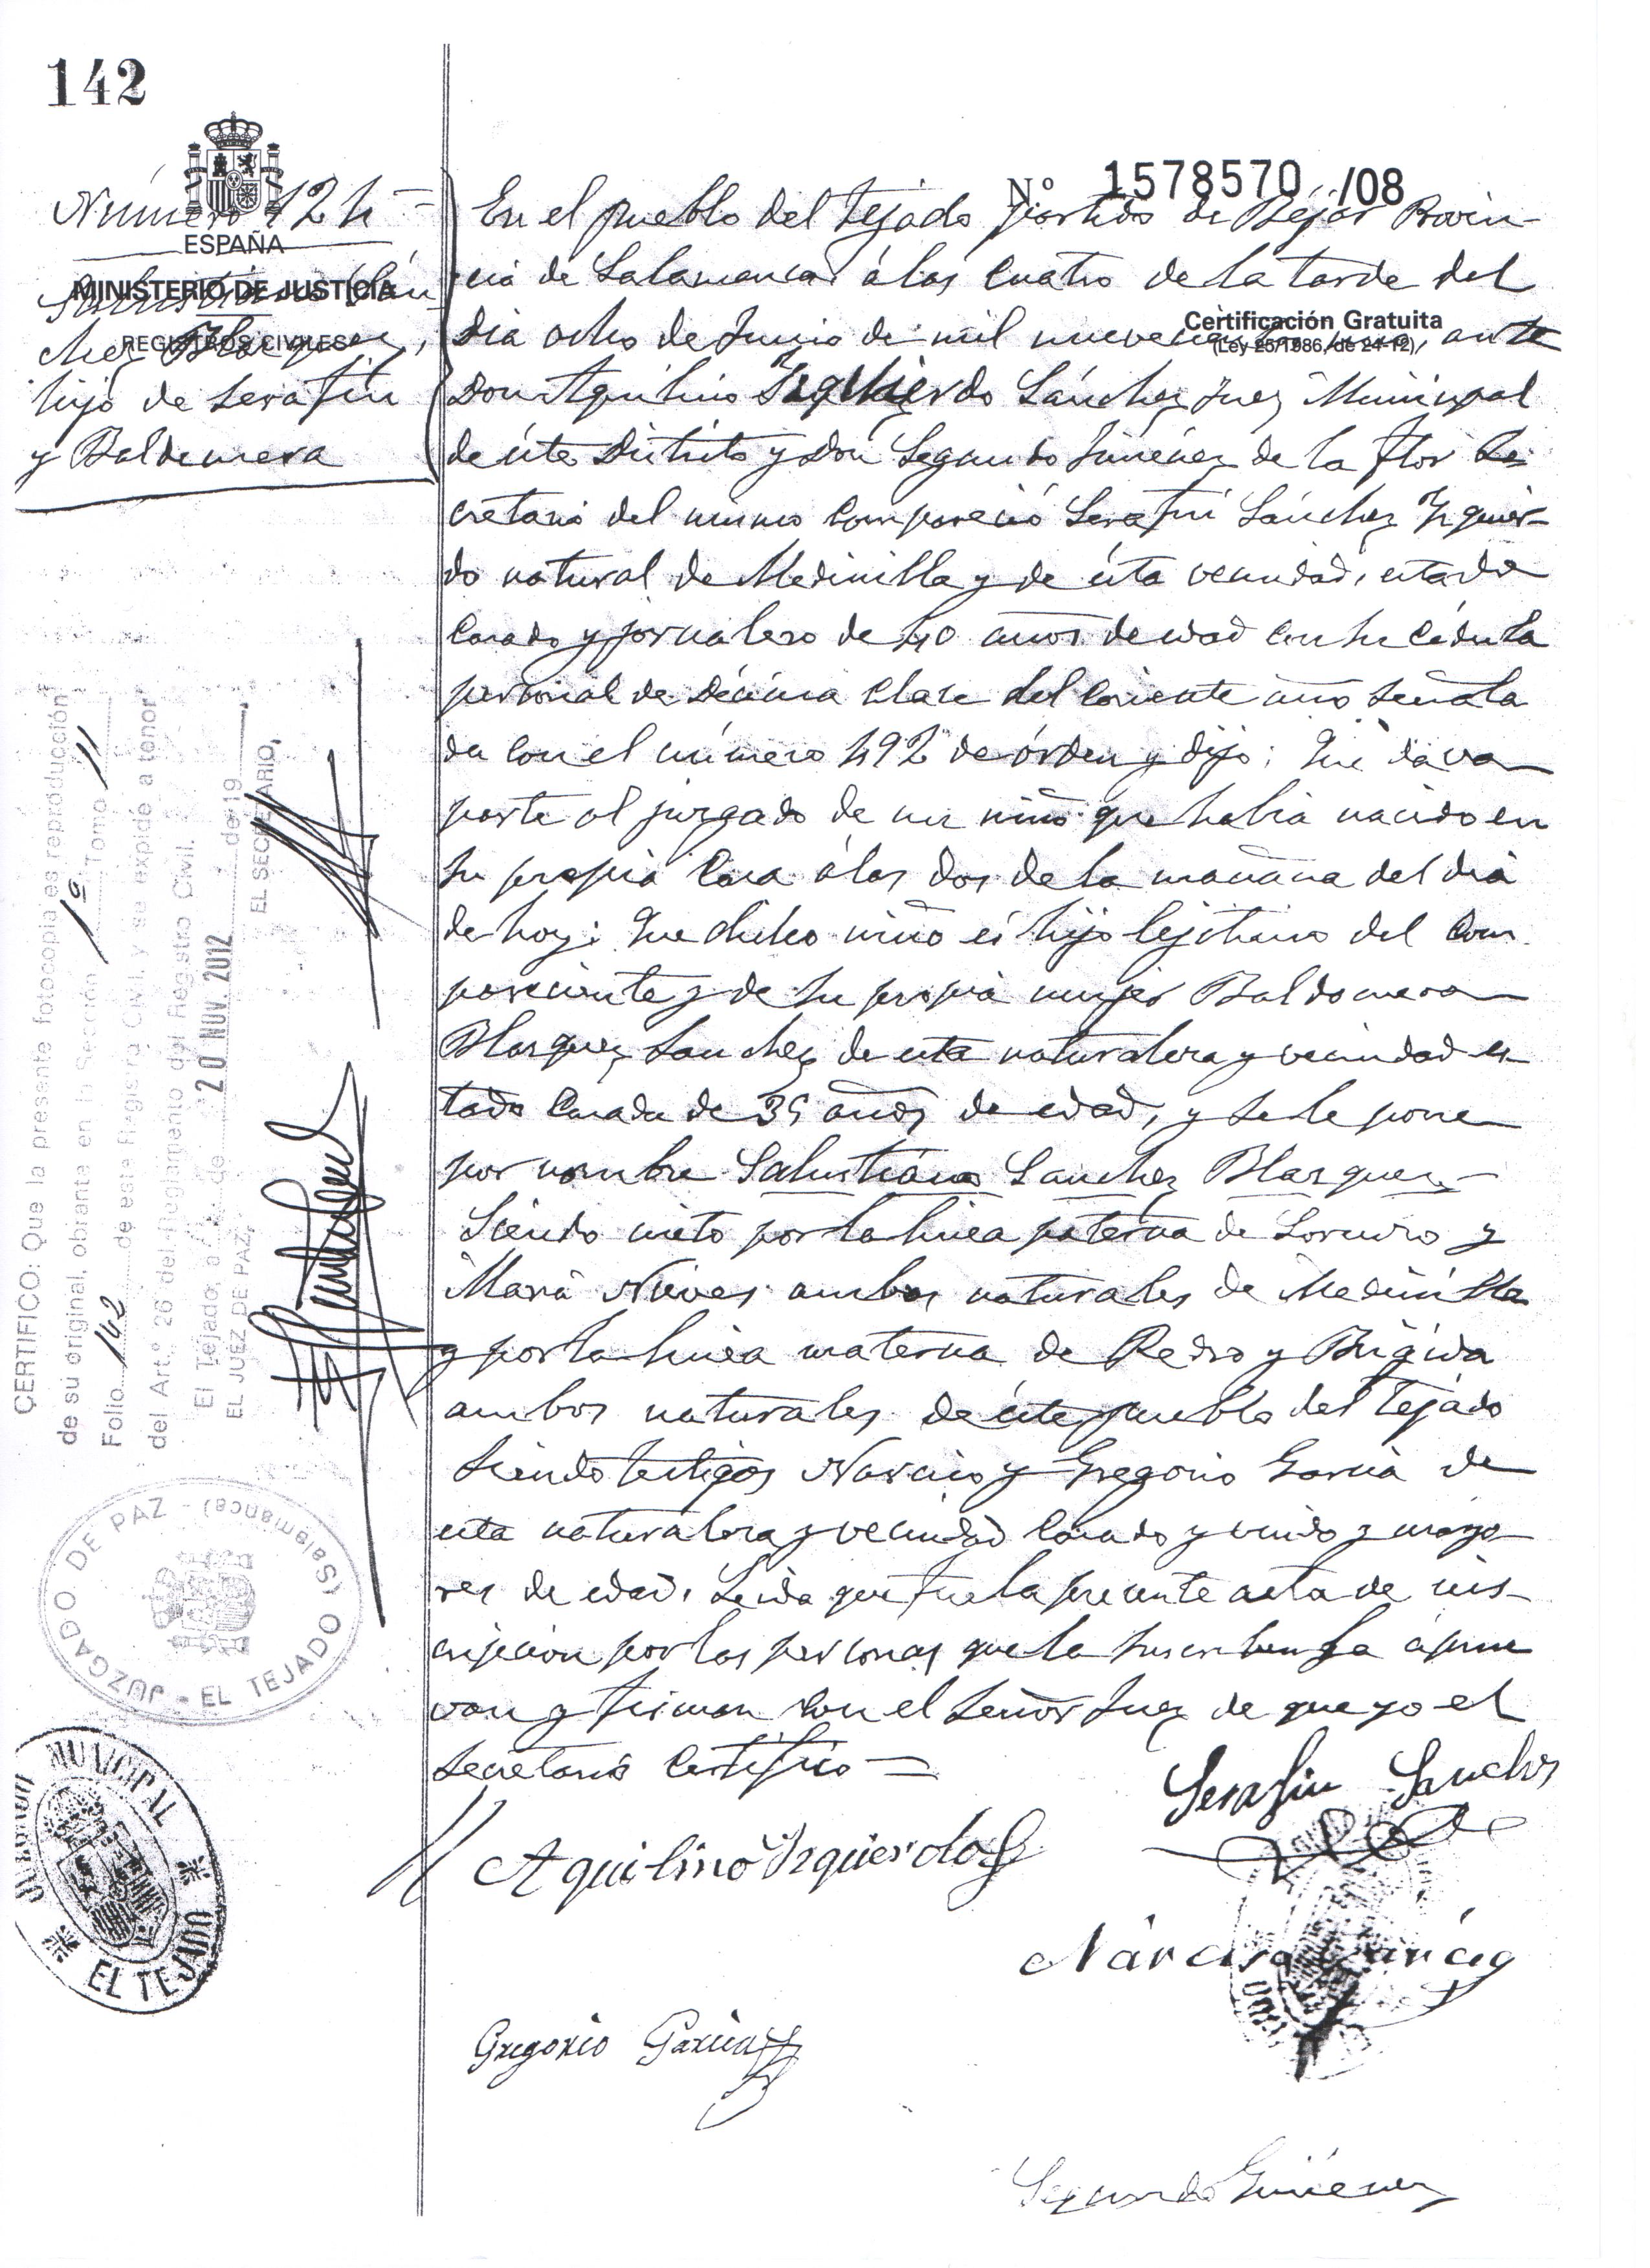 142
Número 124
ESPAÑA
MINISTERIO DE JUSTICIA
REGISTROS CIVILES
Salustiano Sán
chez Blazquez,
hijo de Serafin
y Baldomera
Nº 1578570 /08
Certificación Gratuita
(Ley 25/1986, de 24-12)
En el pueblo del Tejado partido de Bejar Provin-
cia de Salamanca á las cuatro de la tarde del
dia ocho de Junio de mil novecientos ante
Don Aquilino Izquierdo Sánchez Juez Municipal
de éste Distrito y Don Segundo Jiménez de la Flor Se-
cretario del mismo compareció Serafin Sánchez Izquier-
do natural de Medinilla y de ésta vecindad, estado
casado y jornalero de 40 años de edad con su cédula
personal de décima clase del corriente año señala
da con el número 492 de órden y dijo: Que dava
parte al juzgado de un niño que habia nacido en
su propia casa á las dos de la mañana del dia
de hoy: Que dicho niño és hijo lejitimo del com-
pareciente y de su propia mujer Baldomera
Blazquez Sanchez de esta naturaleza y vecindad es-
tado casada de 35 años de edad, y se le pone
por nombre Salustiano Sanchez Blazquez-
Siendo nieto por la linea paterna de Lorenzo y
Maria Nieves ambos naturales de Medinilla
y por la linea materna de Pedro y Brígida
ambos naturales de éste pueblo del Tejado
Siendo testigos Narciso y Gregorio Garcia de
esta naturaleza y vecindad casado y viudo y mayo-
res de edad. Leida que fue la presente acta de ins-
cripción por las personas que la suscriben la aprue
van y firman con el Señor Juez de que yo el
Secretario certifico =
Serafin Sanchez
Aquilino Izquierdo
Narciso Garcia
Gregorio Garcia
Segundo Giménez
CERTIFICO: Que la presente fotocopia es reproducción
de su original, obrante en la Sección 1ª Tomo 11
Folio 142 de este Registro Civil, y se expide a tenor
del Art.º 26 del Reglamento del Registro Civil.
El Tejado, a 20 NOV. 2012 de 19
EL JUEZ DE PAZ, EL SECRETARIO,
JUZGADO DE PAZ - EL TEJADO (Salamanca)
JUZGADO MUNICIPAL
EL TEJADO